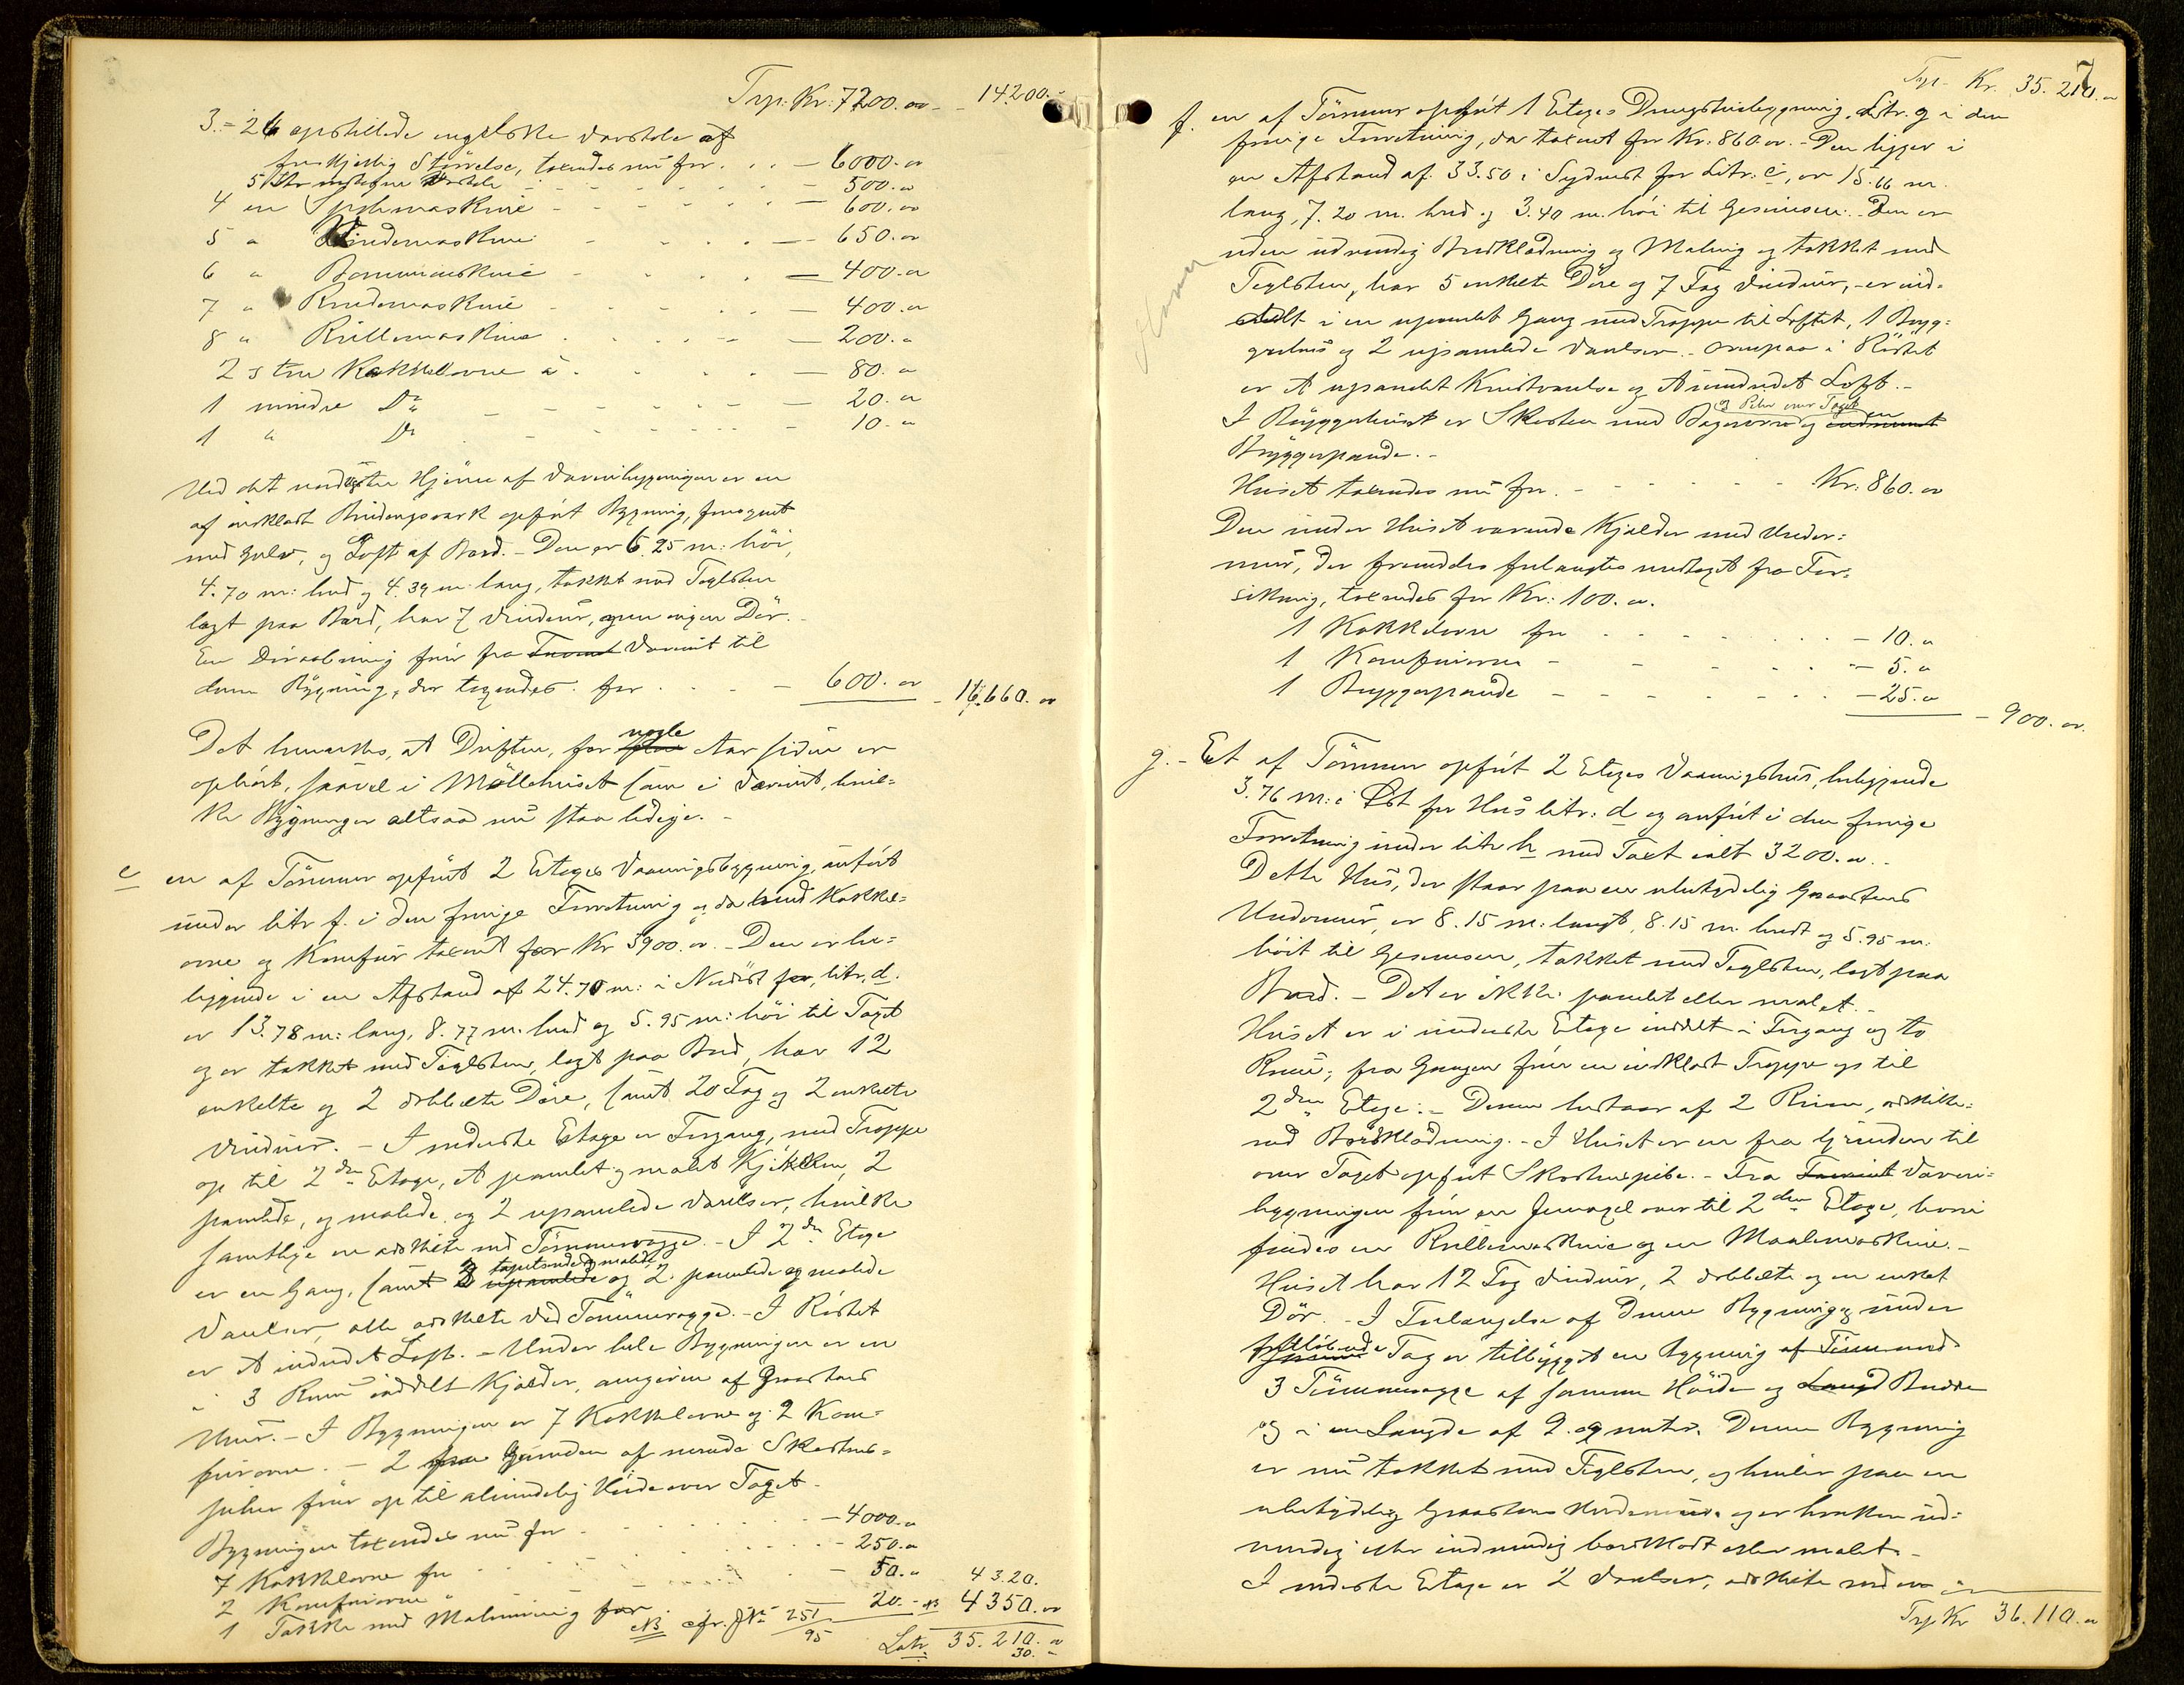 Trp. Kr: 7200. oo - - 14200.-
3. - 26 opstillede engelske Vævstole af
forskjellig Størrelse, taxeres nu for . . . — 6000. oo
5 Vævstole - - - — 500. oo
4 en Spolemaskine - - - — 600. oo
5 " maskine - - - — 650. oo
6 " Bommemaskine - - - — 400. oo
7 " maskine - - - — 400. oo
8 " Rullemaskine - - - — 200. oo
2 større Kakkelovne á . . . — 80. oo
1 mindre Do - - - — 20. oo
1 " Do - - - 10. oo
Ved det nordøstre Hjørne af Væveribygningen er en
af indklædt Bindingsværk opført Bygning, forsynet
med Gulv, og Loft af Bord. - Den er 6.25 m: høi,
4.70 m: bred og 4.39 m lang, tækket med Teglsten
lagt paa Bord, har 7 Vinduer, men ingen Dør. -
En Døraabning fører fra Væveriet til
denne Bygning, der taxeres for . . . — 600. oo — 16.660. oo
Det bemærkes, at Driften, for nogle Aar siden er
ophørt, saavel i Møllehuset som i Væveriet, hvil=
ke Bygninger altsaa nu staa ledige. -
e en af Tømmer opført 2 Etages Vaaningsbygning, anført
under litr f. i den forrige Forretning og da med Kakkel=
ovne og Komfur taxeret for Kr 3900. oo. - Den er be=
liggende i en Afstand af 24.70 m: i Nordøst for litr. d.
er 13.78 m: lang, 8.77 m. bred og 5.95 m: høi til Taget
og er tækket med Teglsten, lagt paa Bord, har 12
enkelte og 2 dobbelte Døre, samt 20 Fag og 2 enkelte
Vinduer. - I nederste Etage er Forgang, med Trappe
op til 2den Etage, et panelet og malet Kjøkken, 2
panelede, og malede og 2 upanelede Værelser, hvilke
samtlige ere adskilte ved Tømmervægge. - I 2den Etage
er en Gang, samt 2 upanelede tapetserede og malede og 2 panelede og malede
Værelser, alle adskilte ved Tømmervægge. - I Røstet
er et indredet Loft. - Under hele Bygningen er en
i 3 Rum inddelt Kjælder, omgiven af Graastens
Mur. - I Bygningen er 7 Kakkelovne og 2 Kom=
furovne. - 2 fra Grunden af murede Skorstens=
piber fører op til almindelig Høide over Taget. -
Bygningen taxeres nu for . . . — 4000. oo
7 Kakkelovne for . . . — 250. oo
2 Komfurovne " . . . — 50. oo 4320.
1 Takke med Malmring for — 20. - NB 4350. oo
NB cfr. JNo 251/95 Latr. 35.210. oo
30. -
7
Trp. Kr. 35.210. oo
f. en af Tømmer opført 1 Etages Drengstuebygning, Litr. g i den
forrige Forretning, da taxeret for Kr. 860. oo. - Den ligger i
en Afstand af 33.50 i Sydvest for Litr: e, er 15.66 m.
lang, 7.20 m. bred og 3.40 m. høi til Gesimsen. - Den er
uden udvendig Bordklædning og Maling og tækket med
Teglsten, har 5 enkelte Døre og 7 Fag Vinduer, - er ind-
delt i en upanelet Gang med Trappe til Loftet, 1 Bryg=
gerhus og 2 upanelede Værelser. - Ovenpaa i Røstet
er et upanelet Kvistværelse og et uindredet Loft. -
I Bryggerhuset er Skorsten med Bagerovn og Pibe over Taget og en
Bryggerpande. -
Huset taxeres nu for. - - - Kr: 860. oo
Den under Huset værende Kjælder med Under=
mur, der fremdeles forlangtes undtaget fra For=
sikring, taxeres for Kr: 100. oo.
1 Kakkelovn for . . . — 10. oo
1 Komfurovn - - - — 5. oo
1 Bryggerpande - - - — 25. oo
— 900. oo.
g. - Et af Tømmer opført 2 Etages Vaaningshus, beliggende
3.76 m: i Øst for Hus litr: d og anført i den forrige
Forretning under litr h med Taxt ialt 3200. oo. -
Dette Hus, der staar paa en ubetydelig Graastens
Undermur, er 8.15 m: langt, 8.15 m. bredt og 5.95 m.
høit til Gesimsen, tækket med Teglsten, lagt paa
Bord. - Det er ikke panelet eller malet. -
Huset er i underste Etage inddelt i Forgang og to
Rum; fra Gangen fører en indklædt Trappe op til
2den Etage: - Denne bestaar af 2 Rum, adskilte
ved Bordklædning. - I Huset er en fra Grunden til
over Taget opført Skorstenspibe. - Fra Væveri=
bygningen fører en Jernvogel over til 2den Etage, hvori
findes en Rullemaskine og en Maalemaskine. -
Huset har 12 Fag Vinduer, 2 dobbelte og en enkelt
Dør. - I Forlængelse af denne Bygning og under
fortløbende Tag er tilbygget en Bygning af Tømmer med
3 Tømmervægge af samme Høide og Længd Bredde
og i en Længde af 9. meter. Denne Bygning
er nu tækket med Teglsten, og hviler paa en
ubetydelig Graastens Undermur og er hverken ud=
vendig eller indvendig bordklædt eller malet. -
I nederste Etage er 2 Værelser, adskilte ved en
Trp Kr 36.110. oo